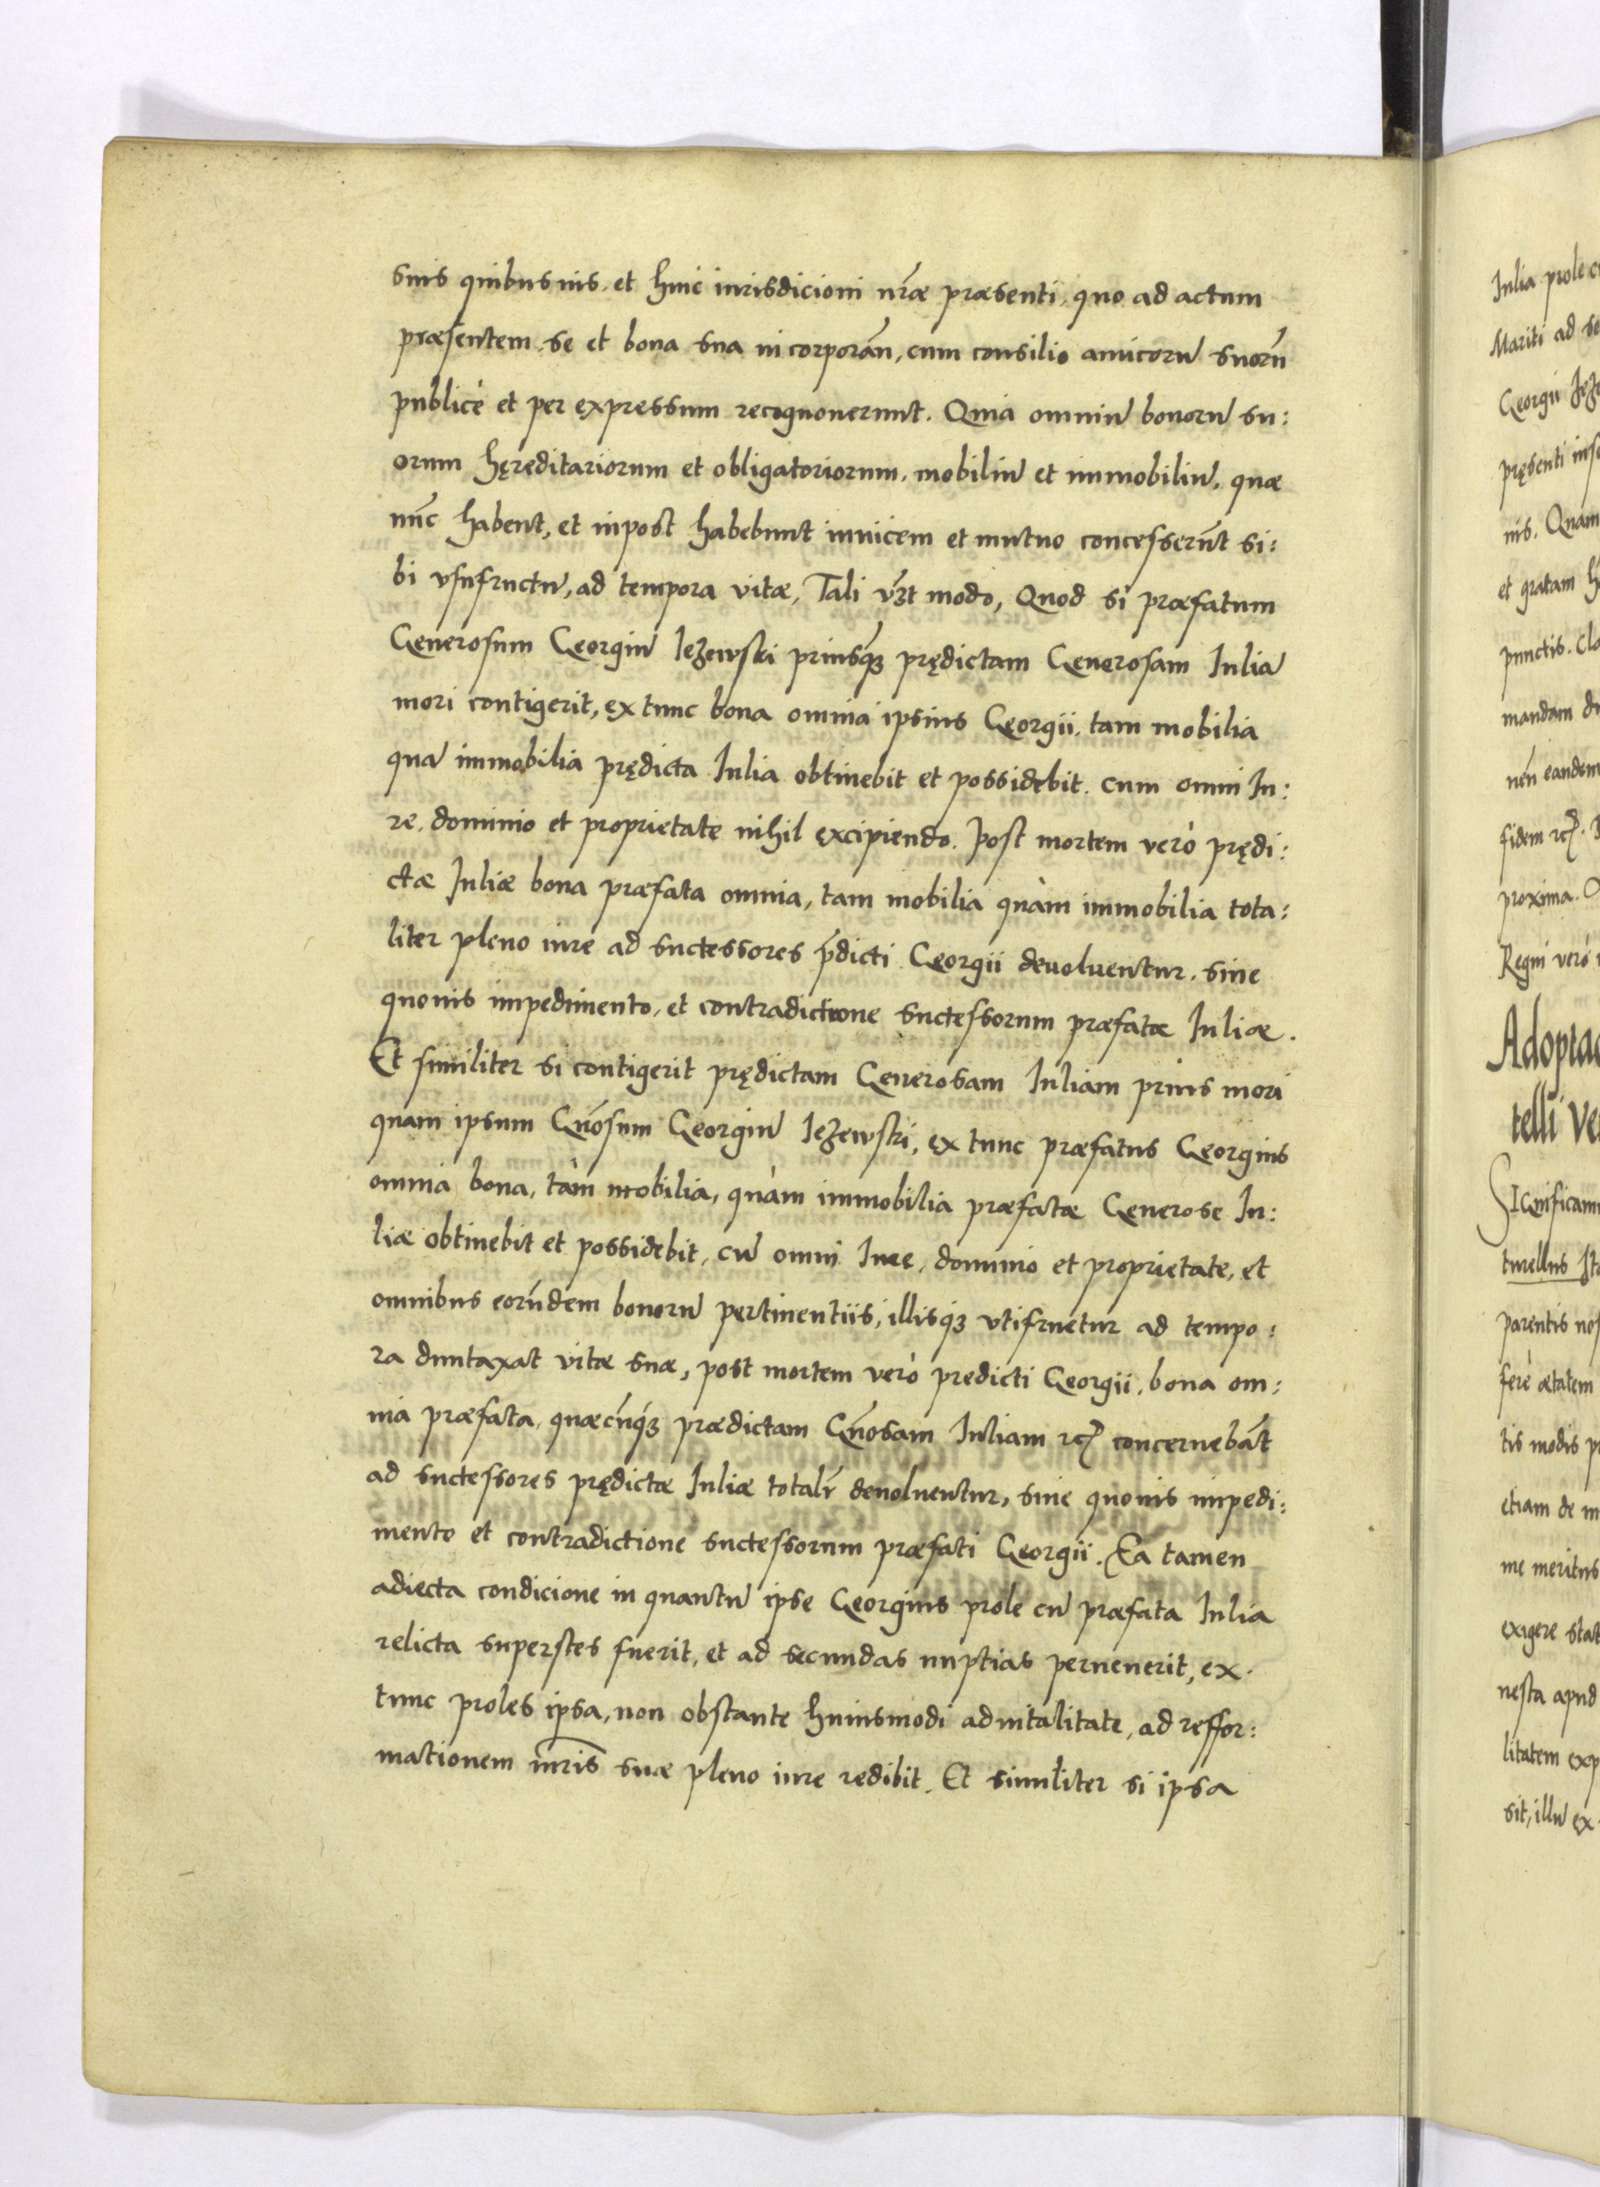 suis quibusuis. et huic iurisdicioni nr̃æ præsenti. quo ad actum
præsentem. se et bona sua incorporãn, cum consilio amicorũ suorũ
publicè et per expressum recognouerunt. Quia omniũ bonorũ su:
orum hęreditariorum et obligatoriorum. mobiliũ et immobiliũ. quæ
nũc habent, et inpost habebunt inuicem et mutuo concesserũt si:
bi vsufructũ, ad tempora vitæ, Tali vꝫt modo, Quod si præfatum
Generosum Georgiũ Ieżewski priusq̃ꝫ prędictam Generosam Iuliã
mori contigerit, ex tunc bona omnia ipsius Georgii. tam mobilia
quã immobilia prędicta Iulia obtinebit et possidebit. cum omni Iu:
re. dominio et proprietate nihil excipiendo. Post mortem verò prędi:
ctæ Iuliæ bona præfata omnia, tam mobilia quàm immobilia tota:
liter pleno iure ad successores p̃dicti Georgii deuoluentur. sine
quouis impedimento, et contradictione successorum præfatæ Iuliæ.
Et similiter si contigerit prędictam Generosam Iuliam prius mori
quam ipsum Gñosum Georgiũ Ieżewski, ex tunc præfatus Georgius
omnia bona, tàm mobilia, quàm immobilia præfatæ Generose Iu:
liæ obtinebit et possidebit, cũ omni Iure, dominio et proprietate, et
omnibus eorũdem bonorũ pertinentiis, illisq́ꝫ vtifruetur ad tempo:
ra duntaxat vitæ suæ, post mortem verò predicti Georgii, bona om:
nia præfata, quæcũq́ꝫ prædictam Gñosam Iuliam ꝛcꝭ concernebãt
ad successores prędictæ Iuliæ totalr̃ deuoluentur, sine quouis impedi:
mento et contradictione successorum præfati Georgii. Ea tamen
adiecta condicione in quantũ ipse Georgius prole cũ præfata Iulia
relicta superstes fuerit, et ad secundas nuptias peruenerit, ex.
tunc proles ipsa, non obstante huiusmodi aduitalitate, ad reffor:
mationem iuris suæ pleno iure redibit. Et similiter si ipsa
Iulia prole
Mariti ad
Georgii
pręsenti
nis. Quam
et gratam
punctis.
mandam
nẽn eandem
fidem ꝛcꝭ.
proxima.
Regni verò
Adopta
telli
SIgnificam
turellus
parentis
ferè ætatem
tis modis
etiam de
me meritus
exigere
nesta apud
litatem
sit, illũ ex